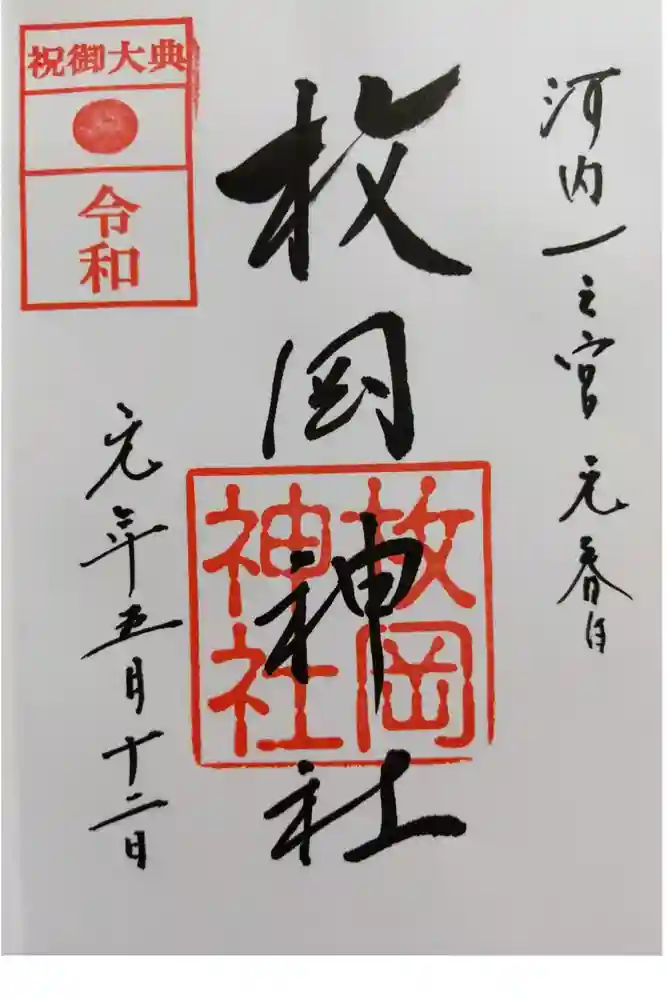 河内一之宮 元春日
枚岡神社
枚岡
神社
元年五月十二日
祝御大典
令和